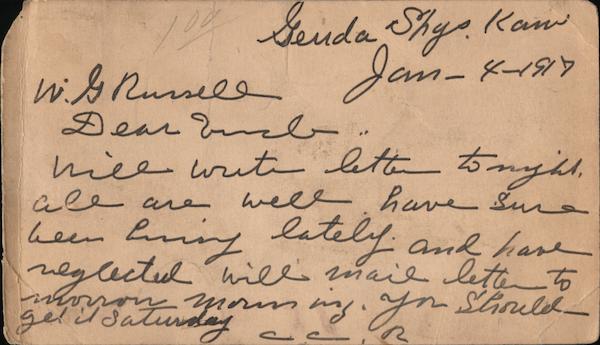 100
Geuda Spgs. Kan
Jan - 4 - 1917
W. G Russell
Dear Uncle ..
Will write letter tonight.
all are well have sure
been busy lately. and have
neglected will mail letter to
morrow morning. you should
get it Saturday
C C. R